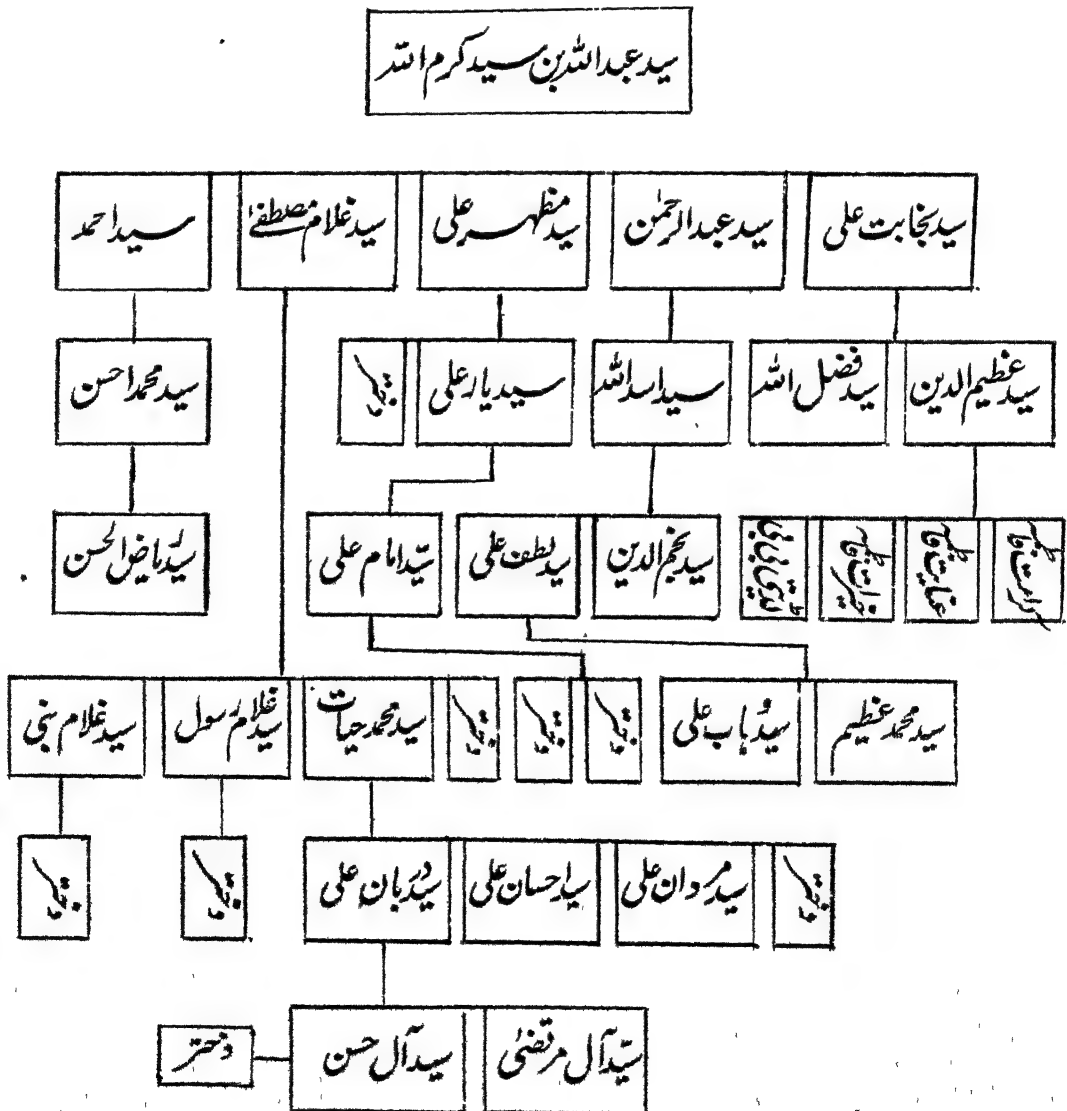 سید عبد اللہ بن سید کرم اللہ
سید نجابت علی
سید عبد الرحمٰن
سید مظہر علی
سید غلام مصطفےٰ
سید احمد
سید عظیم الدین
سید فضل اللہ
سید اسد اللہ
سید یار علی
دختر
سید محمد احسن
کرامت فاطمہ
عنایت فاطمہ
خیرات فاطمہ
بی بی
سید نجم الدین
سید لطف علی
سید امام علی
سید ریاض الحسن
سید محمد عظیم
سید وہاب علی
دختر
دختر
دختر
سید محمد حیات
سید غلام رسول
سید غلام نبی
دختر
سید مردان علی
سید احسان علی
سید دربان علی
دختر
دختر
سید آل مرتضیٰ
سید آل حسن
دختر